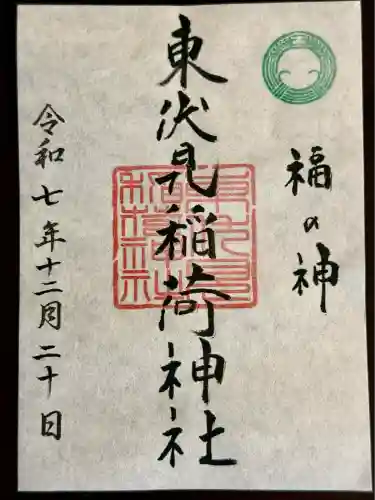 福の神
東伏見稲荷神社
令和七年十二月二十日